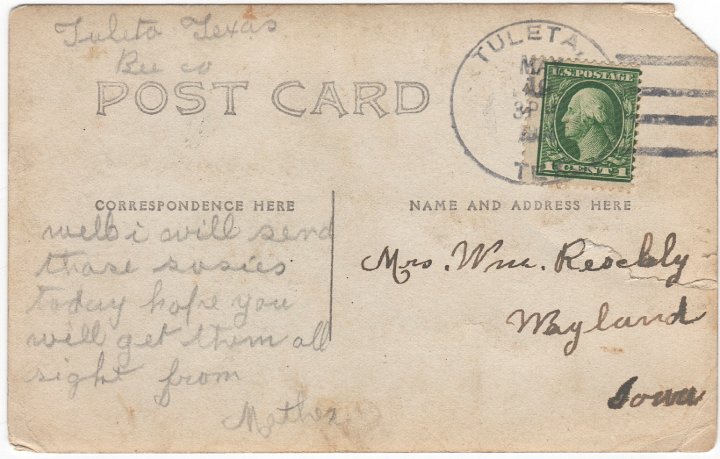 Tuleta Texas
Bee co
POST CARD
TULETA,
3P
TEX
U.S. POSTAGE
1 CENT 1
CORRESPONDENCE HERE
NAME AND ADDRESS HERE
well i will send
those
today hope you
will get them all
right from
Mother
Mrs. Wm.
Wayland
Iowa